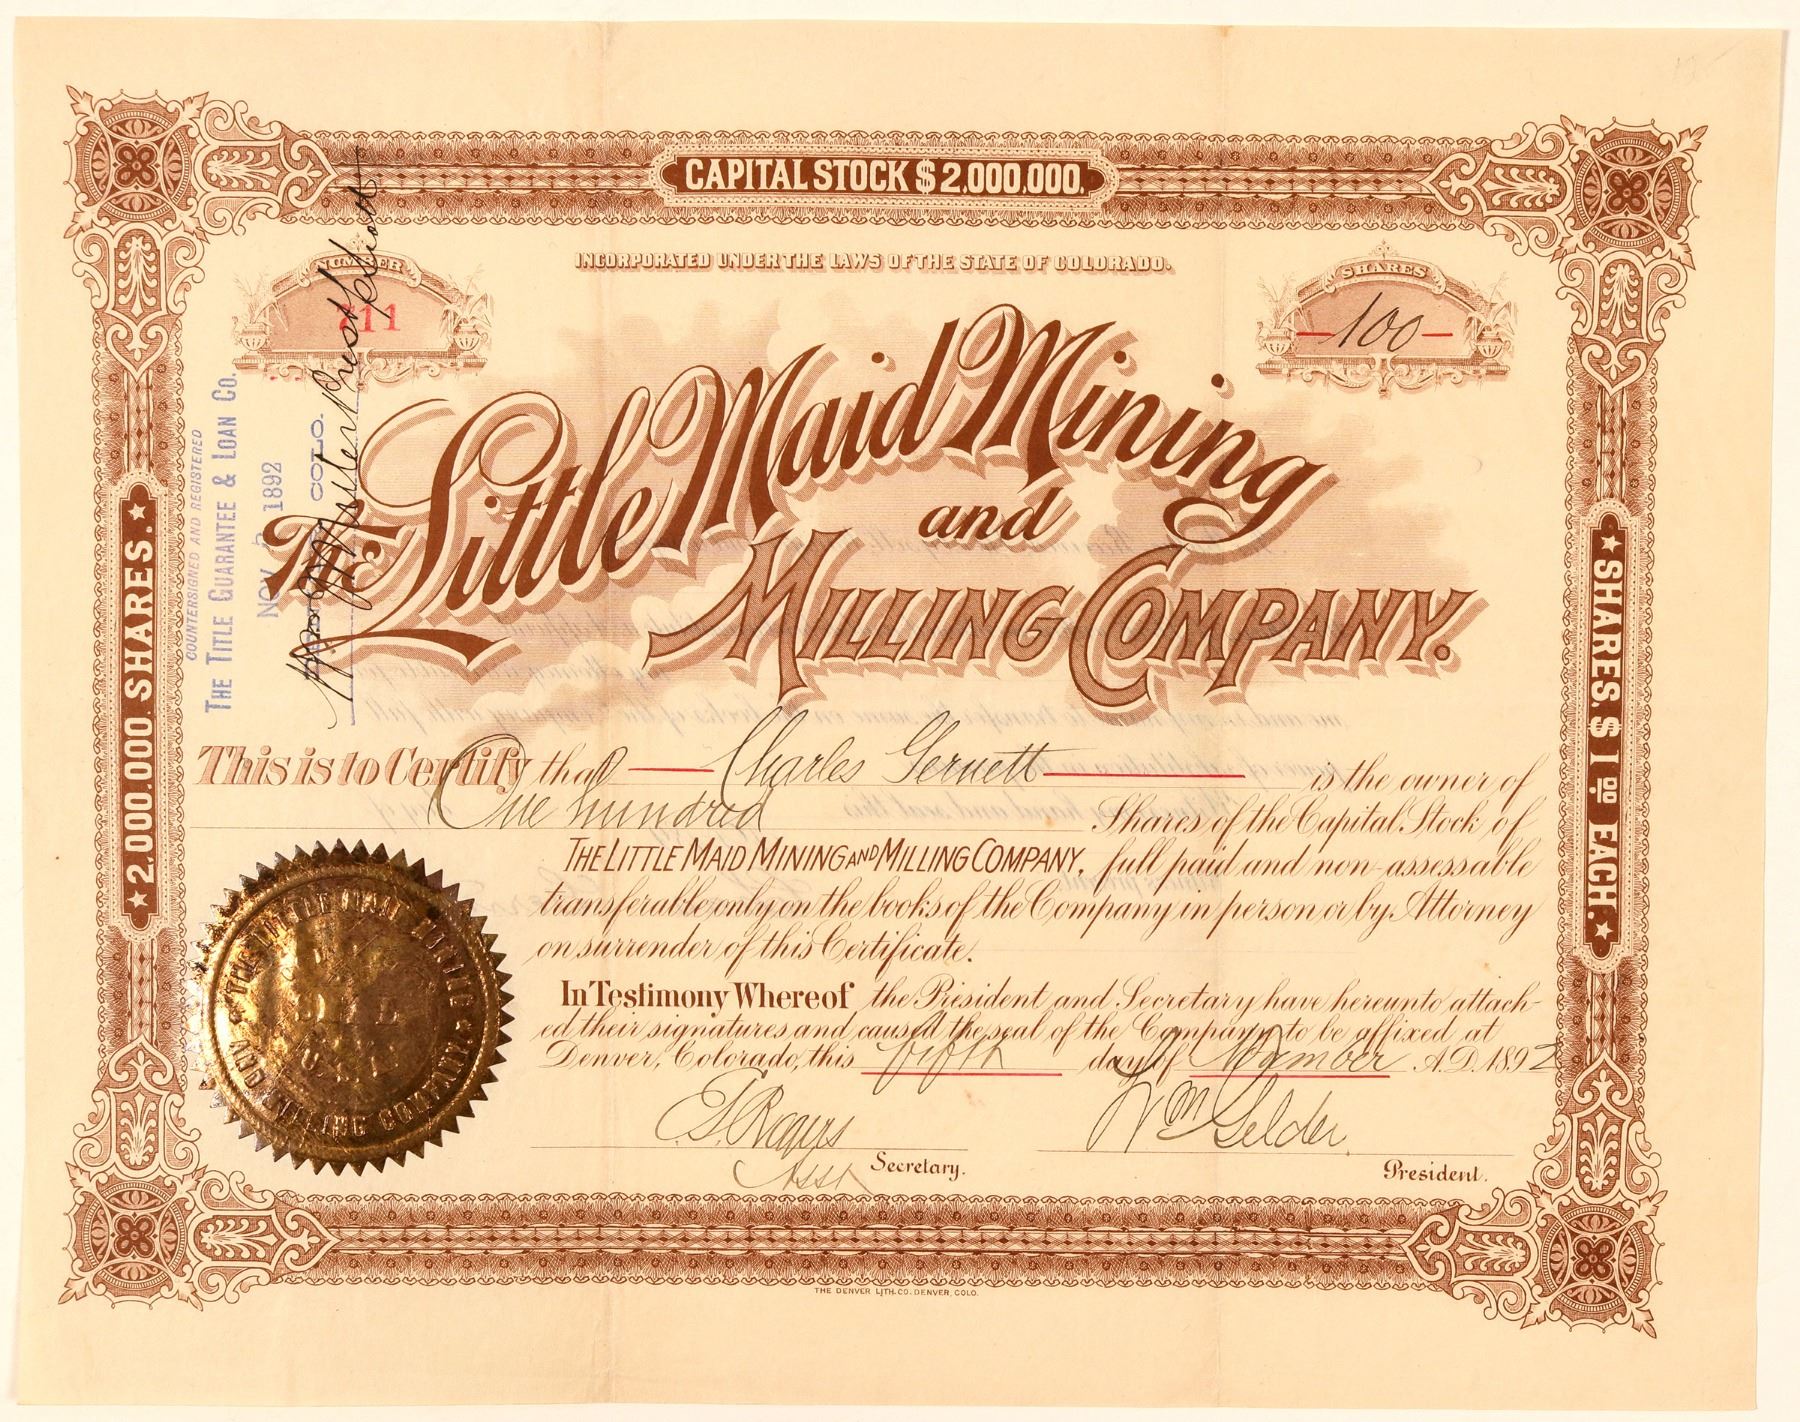 CAPITAL STOCK $2,000,000.
INCORPORATED UNDER THE LAWS OF THE STATE OF COLORADO.
NUMBER
211
SHARES
100
The Little Maid Mining
and
MILLING COMPANY.
This is to Certify that Charles Gernett is the owner of
One hundred Shares of the Capital Stock of
THE LITTLE MAID MINING AND MILLING COMPANY, full paid and non-assessable
transferable only on the books of the Company in person or by Attorney
on surrender of this Certificate.
In Testimony Whereof the President and Secretary have hereunto attach-
ed their signatures and caused the seal of the Company to be affixed at
Denver, Colorado, this fifth day of November A.D. 1892
E. F. Rogers
Asst Secretary.
Wm Gelder.
President.
2,000,000. SHARES.
SHARES. $1 00 EACH.
COUNTERSIGNED AND REGISTERED
THE TITLE GUARANTEE & LOAN CO.
NOV 5 1892
COLO.
President
THE LITTLE MAID MINING
AND MILLING COMPANY
SEAL
THE DENVER LITH. CO. DENVER, COLO.